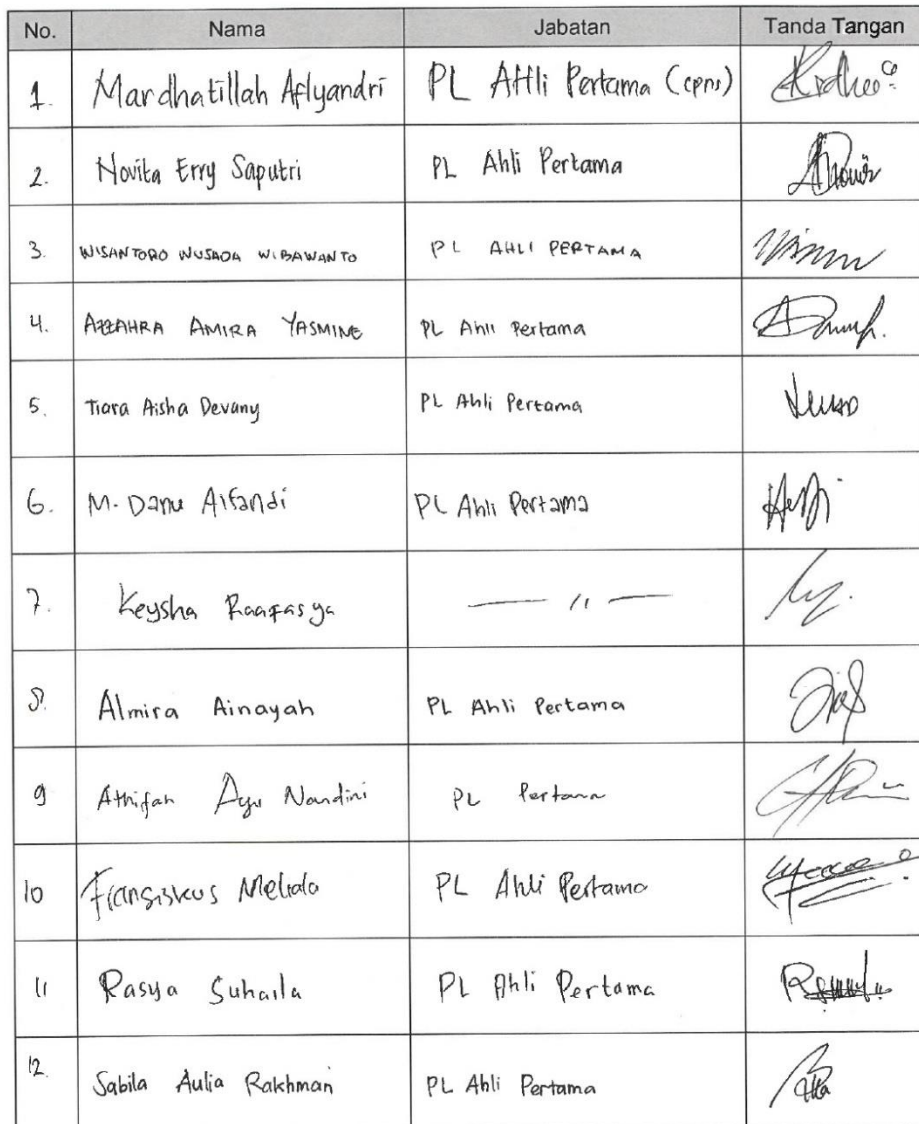 No. Nama Jabatan Tanda Tangan
1. Mardhatillah Aflyandri PL Ahli Pertama (cpns)
2. Novita Erry Saputri PL Ahli Pertama
3. WISANTORO WUSADA WIBAWANTO PL AHLI PERTAMA
4. AZZAHRA AMIRA YASMINE PL Ahli Pertama
5. Tiara Aisha Devany PL Ahli Pertama
6. M. Danu Alfandi PL Ahli Pertama
7. Keysha Raafasya — 11 —
8. Almira Ainayah PL Ahli Pertama
9 Athifah Ayu Nandini PL Pertama
10 Fransiskus Meliala PL Ahli Pertama
11 Rasya Suhaila PL Ahli Pertama
12. Sabila Aulia Rakhman PL Ahli Pertama